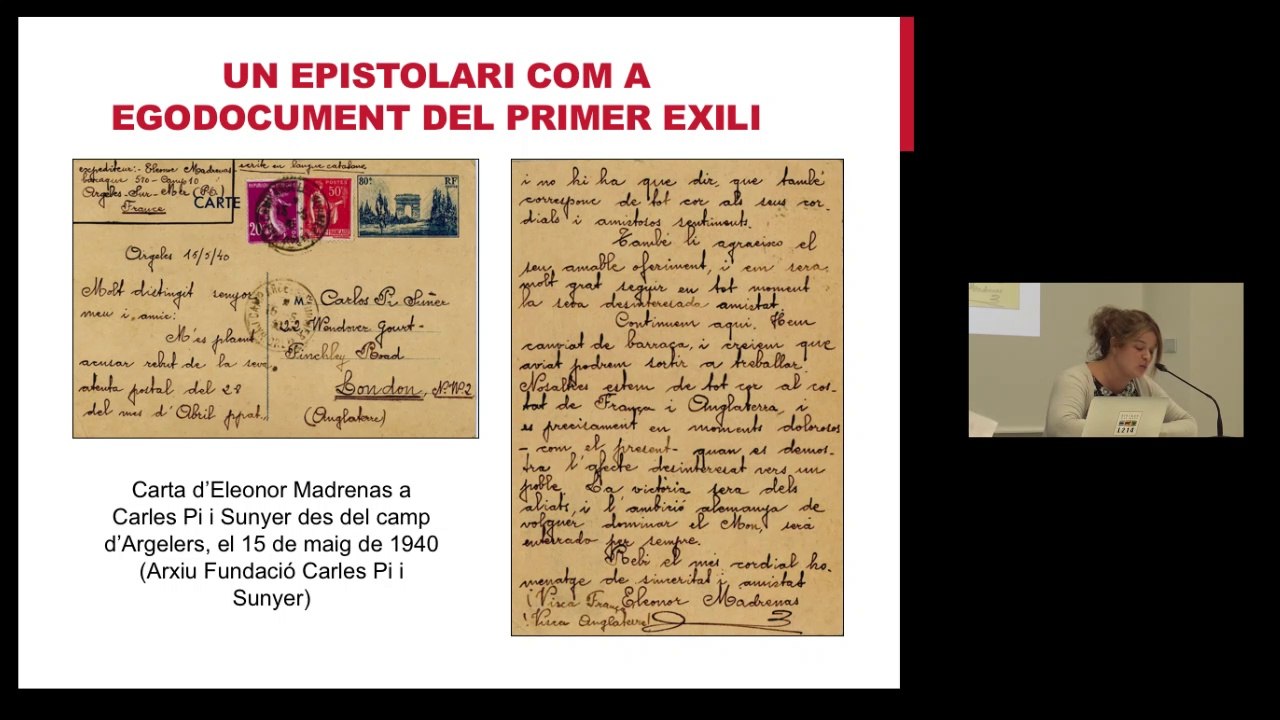 UN EPISTOLARI COM A
EGODOCUMENT DEL PRIMER EXILI
expediteur:- Eleonor Madrenas
baraque 510 - Camp 10
Argeles-Sur-Mer (P.O.)
France
ecrite en langue catalane
CARTE
20
POSTES
50c
80c
RF
Argeles 15/5/40
Molt distingit senyor
meu i amic:
Més plaent
acusar rebut de la seva
atenta postal del 28
del mes d'Abril ppat.
M
Carlos Pi Suñer
22, Wendover Court-
Finchley Road
London, N.W.2
(Anglaterre)
i no hi ha que dir, que també
corresponc de tot cor als seus cor-
dials i amistosos sentiments.
També li agraeixo el
seu amable oferiment, i em sera
molt grat seguir en tot moment
la seva desinteresada amistat
Continuem aqui. Hem
canviat de barraca, i creiem que
aviat podrem sortir a treballar.
Nosaltres estem de tot cor al cos-
tat de França i Anglaterra, i
es precisament en moments dolorosos
- com el present - quan es demos-
tra l'afecte desinteresat vers un
poble. La victòria sera dels
aliats, i l'ambició alemanya de
volguer dominar el Mon, serà
enterrado per sempre.
Rebi el més cordial ho-
menatge de sinceritat i amistat
¡Visca França! Eleonor Madrenas
¡Visca Anglaterre!
Carta d'Eleonor Madrenas a
Carles Pi i Sunyer des del camp
d'Argelers, el 15 de maig de 1940
(Arxiu Fundació Carles Pi i
Sunyer)
L214